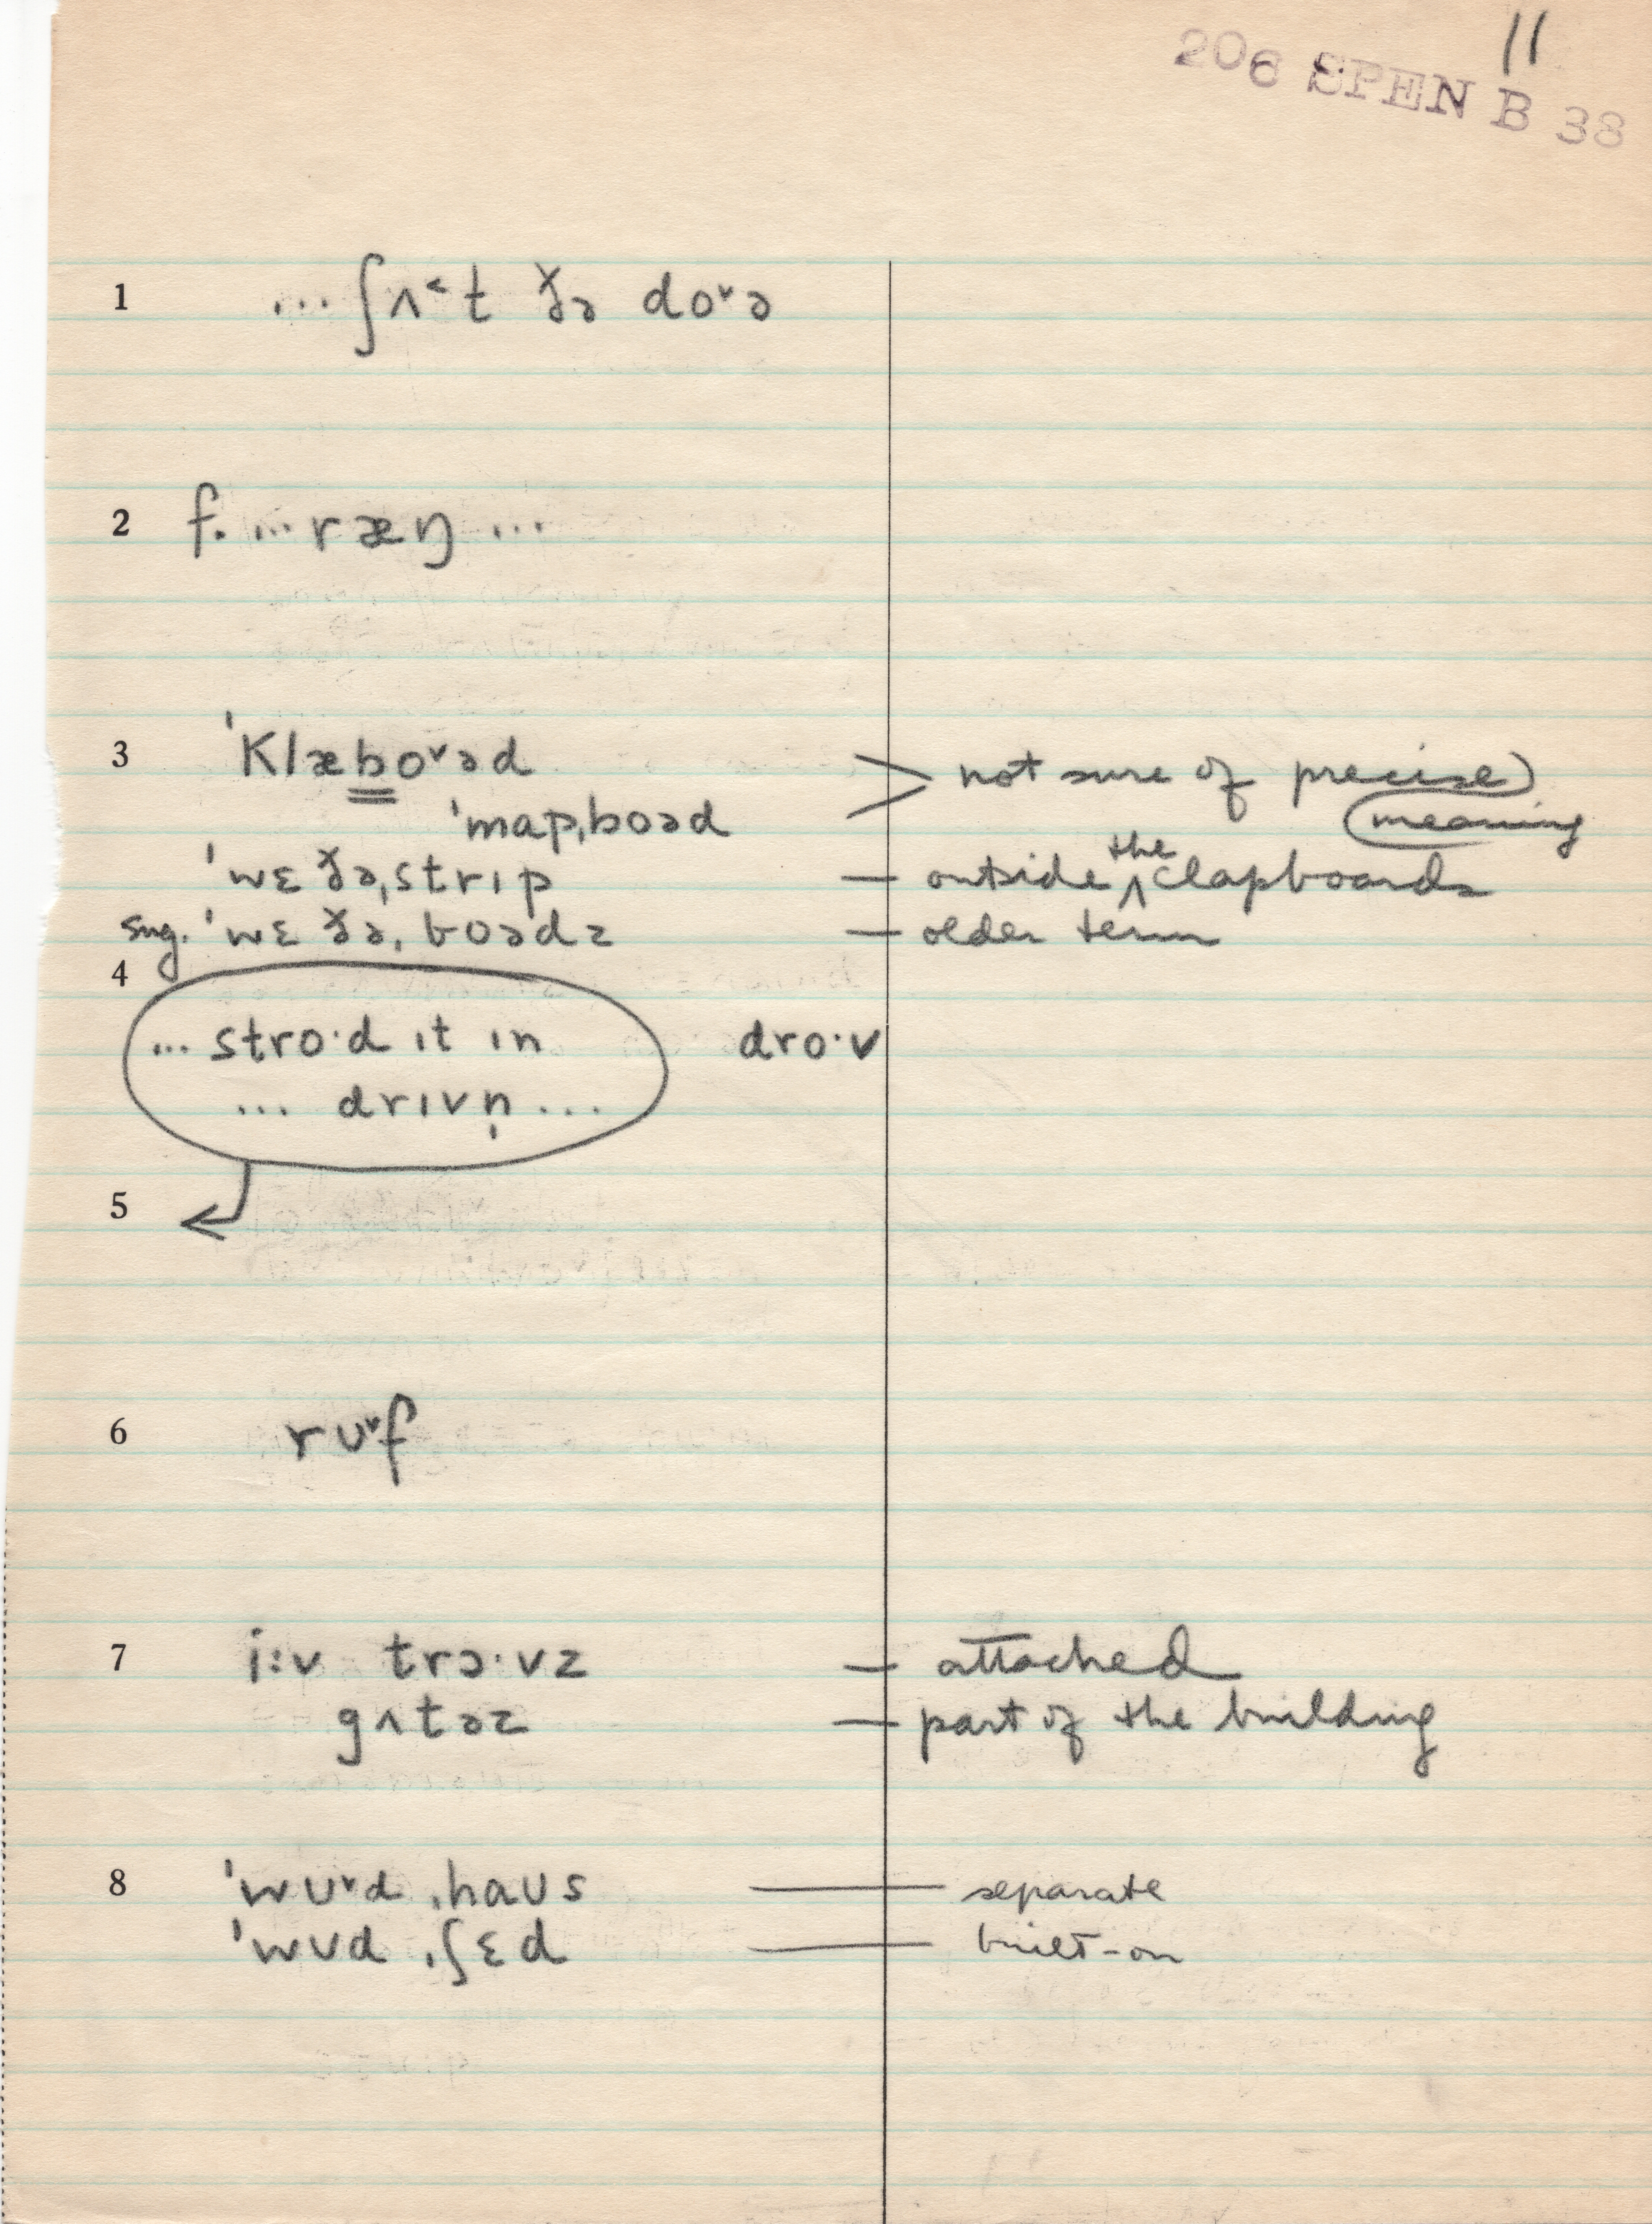 11
206 SPEN B 38
1 ... ʃʌ˂t ðə do˅ə
2 f. ... ræŋ ...
3 ˈklæbo˅əd > not sure of precise meaning
ˈmapˌboəd
ˈwɛðəˌstrɪp — outside the clapboards
sug. ˈwɛðəˌboədz — older term
4
... stro·d ɪt ɪn dro·v
... drɪvn̩ ...
5
6 rʊ˅f
7 i:v trɔ·vz — attached
gʌtəz — part of the building
8 ˈwʊ˅dˌhaʊs — separate
ˈwʊdˌʃɛd — built-on